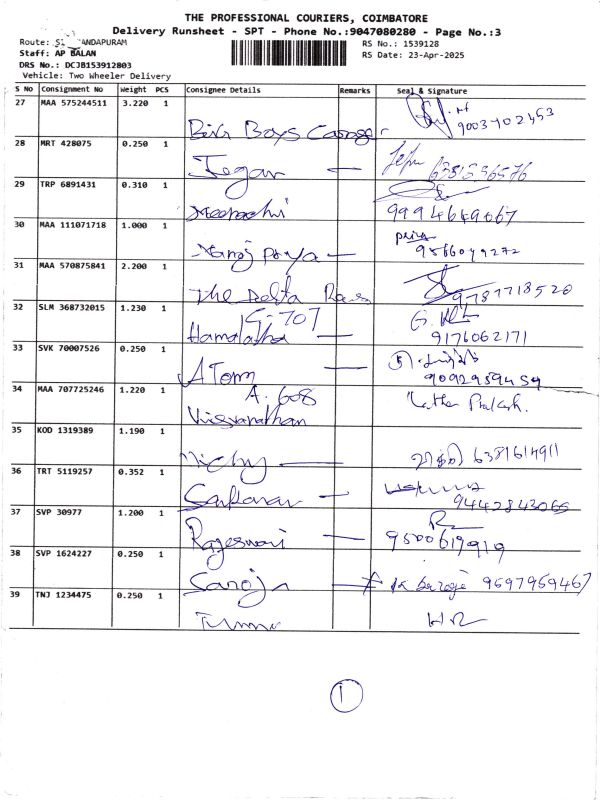 THE PROFESSIONAL COURIERS, COIMBATORE
Delivery Runsheet - SPT - Phone No.:9047080280 - Page No.:3
Route: ANDAPURAM
Staff: AP BALAN
DRS No.: DCJB153912803
Vehicle: Two Wheeler Delivery
RS No.: 1539128
RS Date: 23-Apr-2025
S No Consignment No Weight PCS Consignee Details Remarks Seal & Signature
27 MAA 575244511 3.220 1 Boys 9003702453
28 MRT 428075 0.250 1 Jegan
29 TRP 6891431 0.310 1 Meenachi
30 MAA 111071718 1.000 1 priya
31 MAA 570875841 2.200 1 The Delta 9787718520
32 SLM 368732015 1.230 1 G-707 Hamalatha 9176062171
33 SVK 70007526 0.250 1 ATom
34 MAA 707725246 1.220 1 A. 608 Viisvanathan Prakash.
35 KOD 1319389 1.190 1 6381614911
36 TRT 5119257 0.352 1
37 SVP 30977 1.200 1 Rajeswari 9500619919
38 SVP 1624227 0.250 1 Saroja 9597959467
39 TNJ 1234475 0.250 1
1